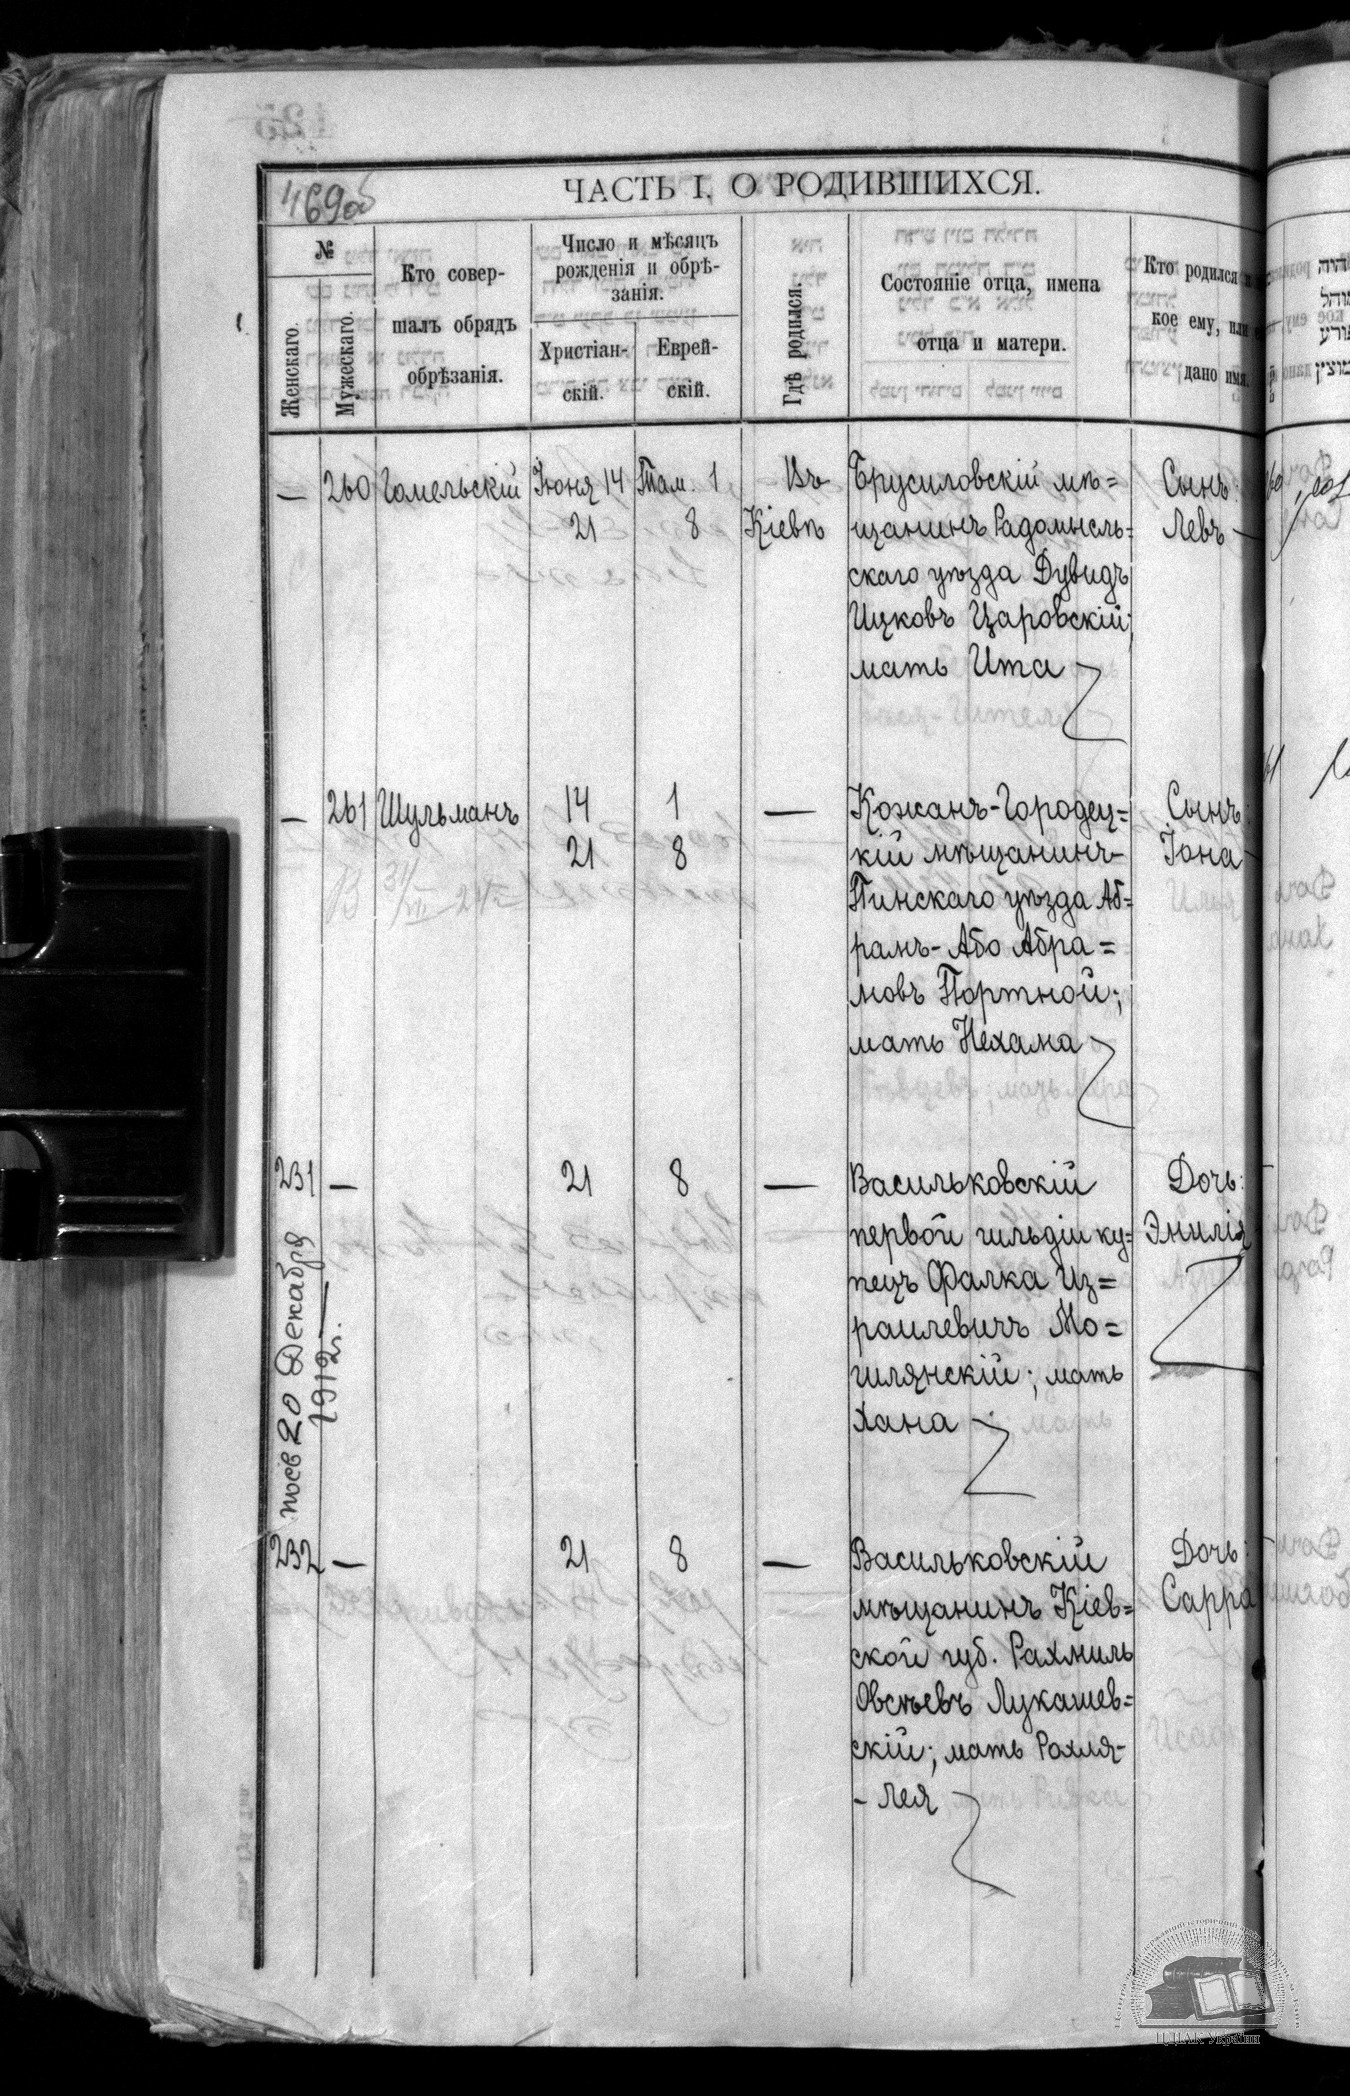 469об
ЧАСТЬ I, О РОДИВШИХСЯ.
№
Женскаго.
Мужескаго.
Кто совер-
шалъ обрядъ
обрѣзанія.
Число и мѣсяцъ
рожденія и обрѣ-
занія.
Христіан-
скій.
Еврей-
скій.
Гдѣ родился.
Состояніе отца, имена
отца и матери.
Кто родился и
кое ему, или
дано имя.
— 260 Гомельскій Іюня 14 Там. 1 Въ Брусиловскій мѣ= Сынъ:
21 8 Кіевѣ щанинъ Радомысль= Левъ —
скаго уѣзда Дувидъ
Ицковъ Царовскій;
мать Ита
— 261 Шульманъ 14 1 — Кожанъ-Городец= Сынъ:
21 8 кій мѣщанинъ Іона
Пинскаго уѣзда Аб=
рамъ-Або Абра=
мовъ Портной;
мать Нехама
231 — 21 8 — Васильковскій Дочь:
первой гильдіи ку= Эмилія
пецъ Фалка Из=
раилевичъ Мо=
гилянскій; мать
Хана
20 Декабря
1912г.
232 — 21 8 — Васильковскій Дочь:
мѣщанинъ Кіев= Сарра
ской губ. Рахмиль
Овсѣевъ Лукашев=
скій; мать Рохля-
- Лея
ЦДІАК України